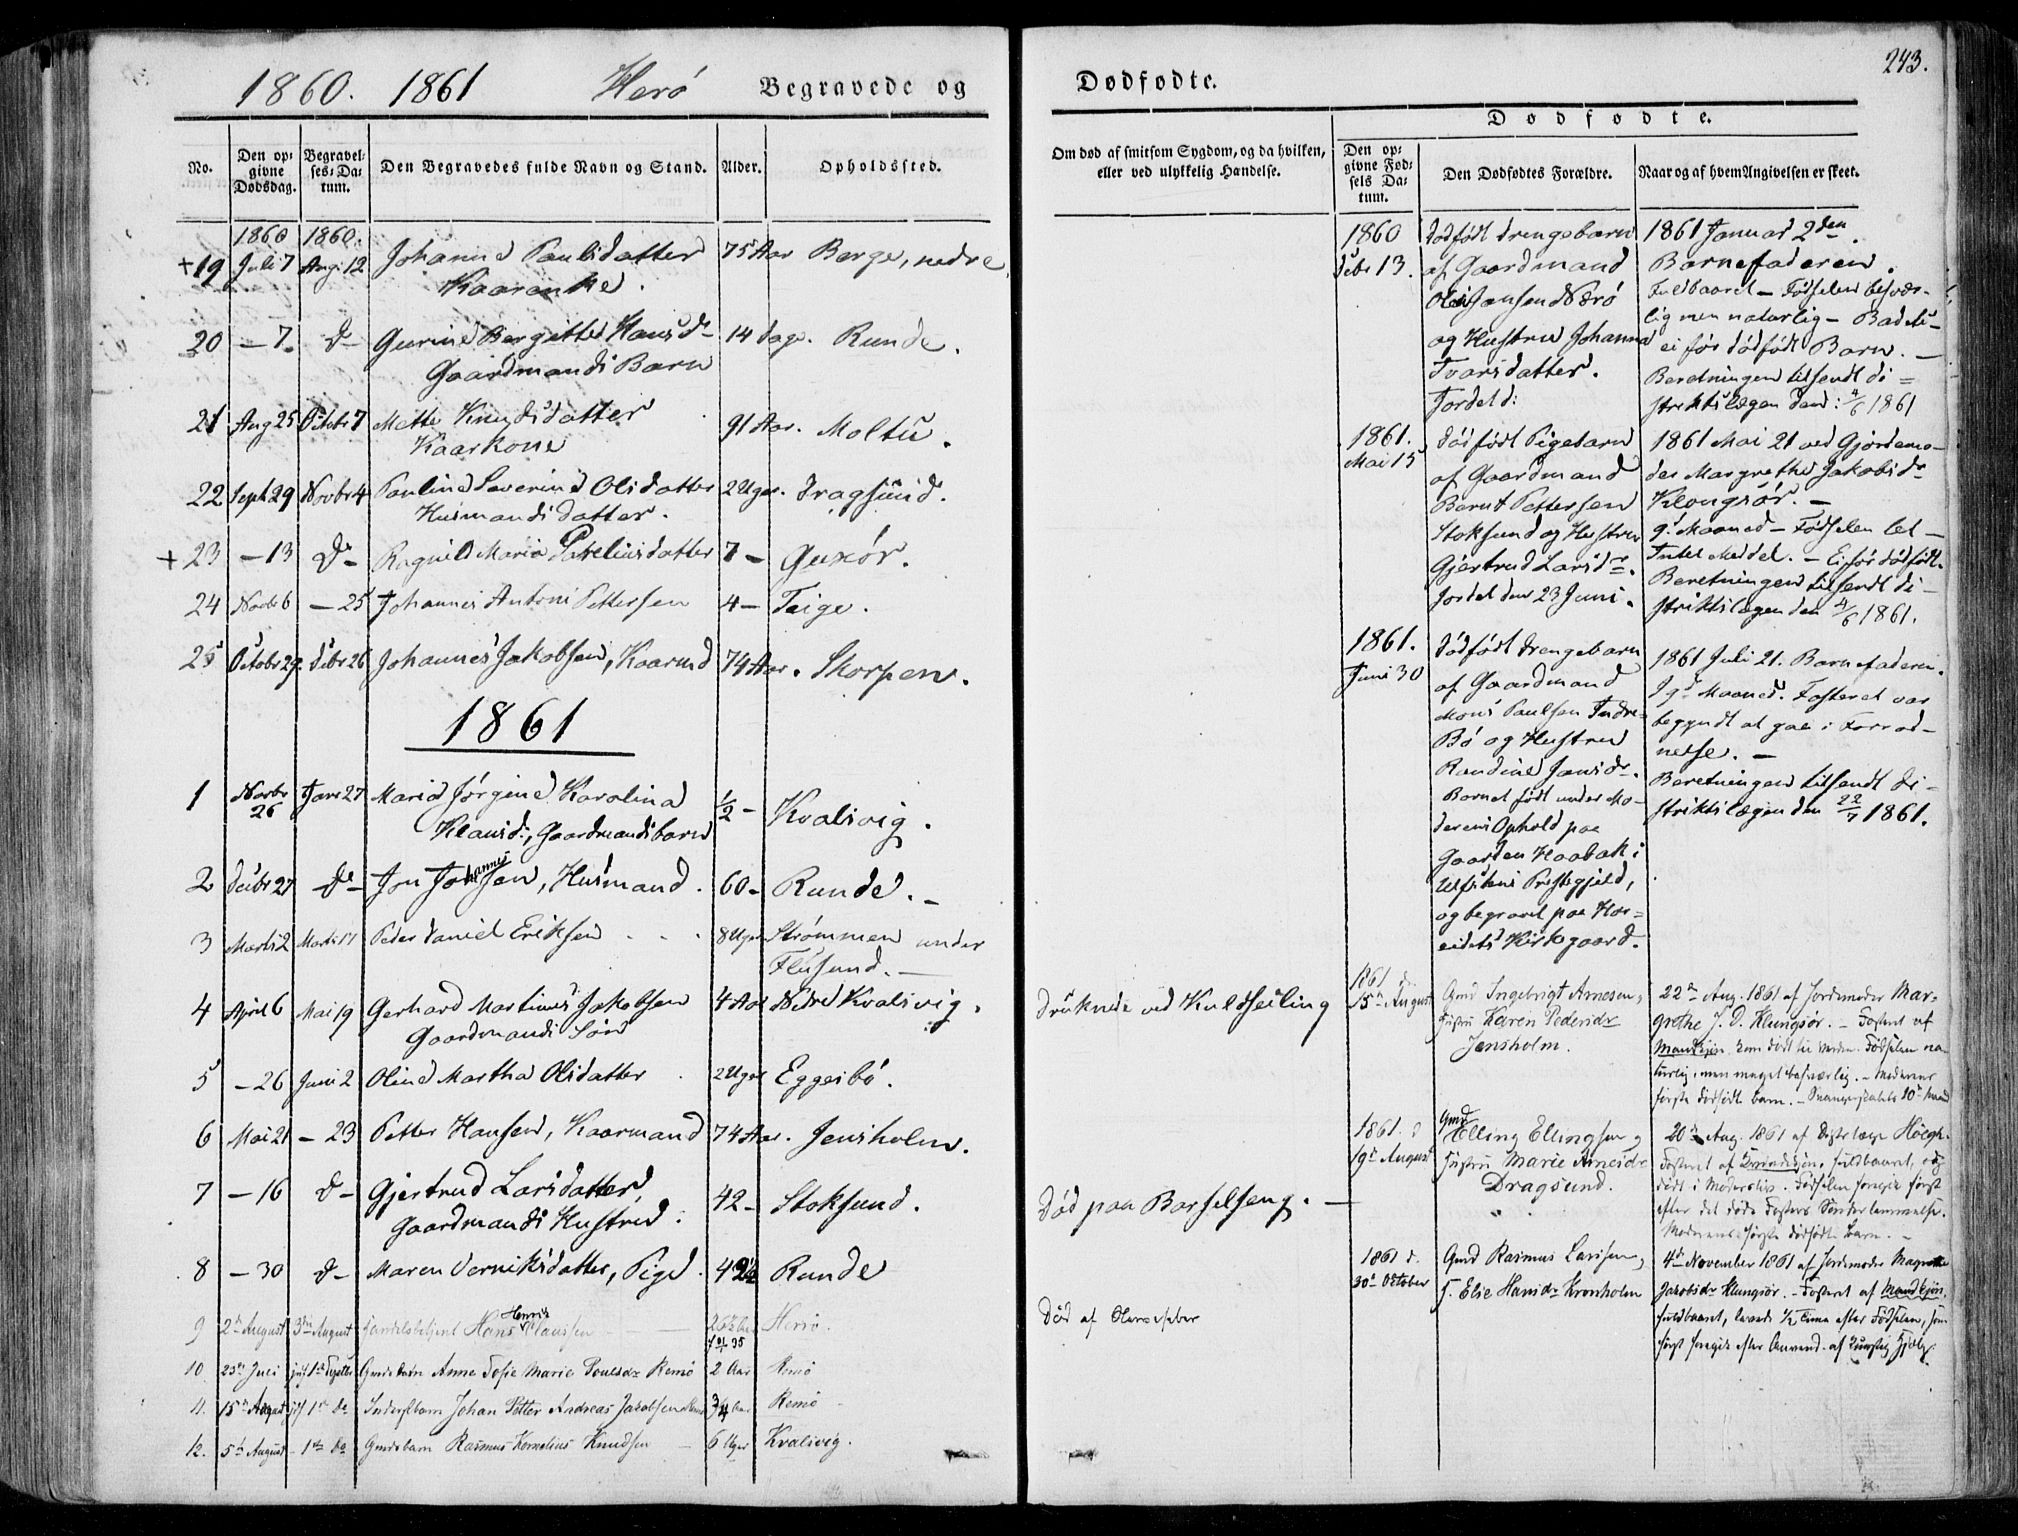 1860. 1861 Herö Begravede og
No.
Den op-
givne
Dødsdag.
Begravel-
ses-Da-
tum.
Den Begravedes fulde Navn og Stand.
Alder.
Opholdssted.
1860 1860.
+19 Juli 7 Aug 12 Johanne Paulsdatter 75 Aar Berge, nedre
Kaarenke.
20 — 7. D- Gurine Bergitte Hansd- 14 dage. Runde.
Gaardmands Barn
21 Aug 25 Octobr 7 Mette Knudsdatter 91 Aar. Moltu.
Kaarkone
22 Sept 29 Novbr 4 Pauline Severine Olsdatter 2 Uger. Dragsund.
Husmandsdatter.
+23 — 13 D- Ragnild Maria Petreliusdatter 7 — Guxör.
24 Novbr 6 — 25 Johannes Antoni Pettersen 4 — Teige.
25 Octobr 29. Debr 26 Johannes Jakobsen, Kaarmd 74 Aar. Skorpen.
1861
1 Novbr 26 Janr 27 Maria Jörgine Karolina ½ — Kvalsvig.
Klausd:, Gaardmandsbarn
2 Decbr 27 D- Jon Johannessen, Husmand. 60 - Runde. -
3 Marts 2 Marts 17 Peder Daniel Eriksen 8 Uger Strømmen under
Flusund. —
4 April 6 Mai 19 Gerhard Martinus Jakobsen 4 Aar Nedre Kvalsvig.
Gaardmands Sön
5 — 26 Juni 2 Oline Martha Olsdatter 2 Uger Eggesbö.
6 Mai 21 — 23 Petter Hansen, Kaarmand 74 Aar. Jensholm.
7 — 16 D- Gjertrud Larsdatter, 42 - Stoksund.
Gaardmands Hustru.
8 — 30 D- Maren Verniksdatter, Pige. 42 Runde
9 2 August August Handelsbetjent Hans Henrik Claussen Herö.
10. 23 Juli 1st Gmdsbarn Anne Sofie Marie Poulsdr Remö 2 Aar Remö
11. 15 August 1st do Johan Petter Andreas Jacobsen Remö ¾ Aar Remö
12. 5 August - 1st do Gmdsbarn Rasmus Kornelius Knudsen 6 Uger Kvalsvig.
243.
Dødfødte.
Dødfødte.
Om død af smitsom Sygdom, og da hvilken,
eller ved ulykkelig Hændelse.
Den op-
givne Fød-
sels Da-
tum.
Den Dødfødtes Forældre.
Naar og af hvem Angivelsen er skeet.
Druknede ved Kuldseiling
Död paa Barselseng. —
Död af
1860
Debr 13.
Dödfödt Drengebarn
af Gaardmand
Ole Jansen Nærö
og Hustru Johanna
Ivarsdatter.
Jordet d:
1861 Januar 2den.
Barnefaderen.
Fuldbaaret — Födselen besvær-
lig men naturlig —
ei för dödfödt Barn. —
Beretningen tilsendt Di-
striktslægen den: 4/6 1861
1861.
Mai 15
Dödfödt Pigebarn
af Gaardmand
Bernt Pettersen
Stoksund og Hustru
Gjertrud Larsdr.
Jordet den 23 Juni.
1861 Mai 21 ved Gjordemo-
der Margrethe Jakobsdr
Klongsör. —
9. Maaned — Födselen let —
Intet Meddel. — Ei för dödfödt.
Beretningen tilsendt Di-
striktslægen den 4/6 1861.
1861.
Juni 30
Dödfödt Drengebarn
af Gaardmand
Mons Paulsen Indre-
Bö og Hustru
Randine Jansdr.
Barnet födt under Mo-
derens Ophold paa
Gaarden Haabak i
Ulfstens Prestegjeld,
og begravet paa Har-
eidets Kirkegaard.
1861 Juli 21. Barnefaderen.
I 9d Maaned. Fosteret var
begyndt at gaa i Forraad-
nelse. —
Beretningen tilsendt Di-
striktslægen den 22/7 1861.
1861 d.
15d August
Gmd Ingebrigt Arnesen,
Hustru Karen Pedersdr
Jensholm.
22de Aug. 1861 af Jordemoder Mar-
grethe J. D. Klungsör. — Fosteret af
Mandkjön, kom dödt til Verden. Födselen na-
turlig, men meget besværlig. — Moderens
förste dödfödte Barn. — 10d Maaned
1861. d
19d August
Gmd Elling Ellingsen og
Hustru Marie Arnesdr
Dragsund.
20de Aug. 1861 af Distrlæge Höegh.
Fosteret af Kvindekjön, fuldbaaret,
dödt i Moderslip. Födselen foregik först
efter det döde Fosters Sönderlemmelse.
Moderens förste dödfödte Barn. —
1861 d.
30d October
Gmd Rasmus Larssen,
H. Elie Hansdr Kronholm
4de November 1861 af Jordemoder Magrethe
Jakobsdr Klungsör. — Fosteret af Mandkjön,
fuldbaaret, levede ½ Time efter Födselen, som
först foregik efter Anvend. af Kunstig Hjælp.